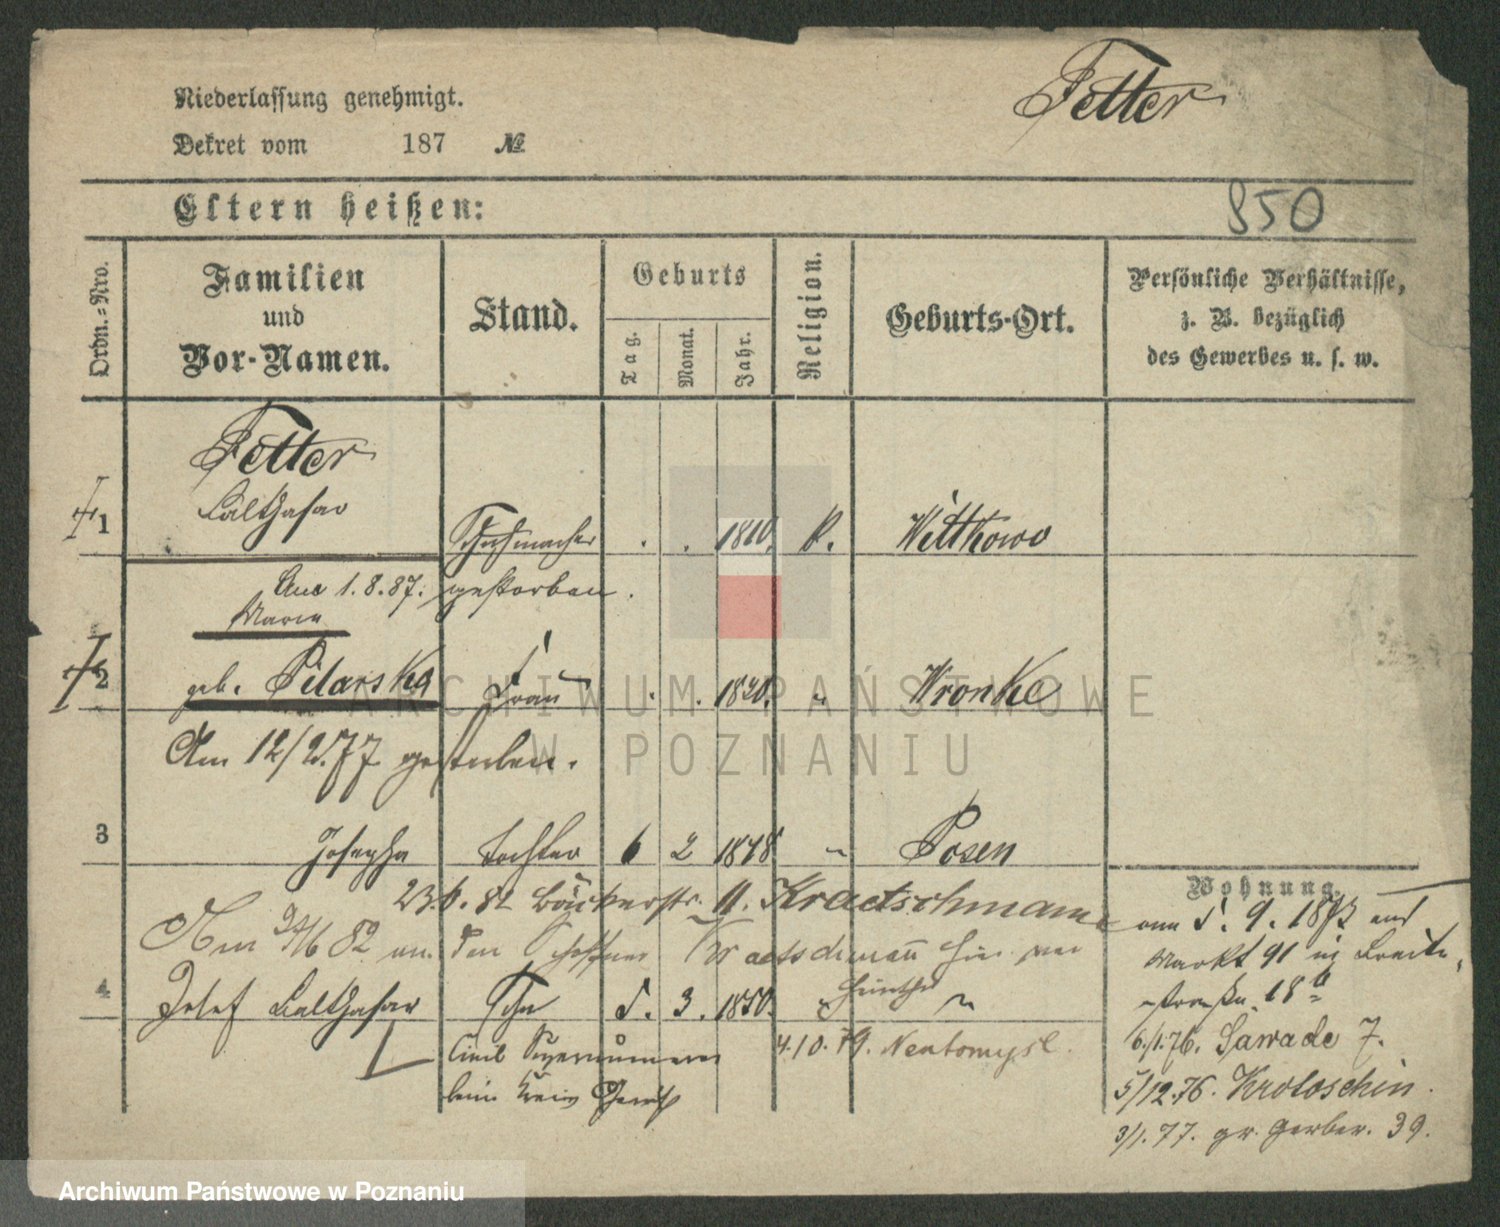 Fetter
Niederlassung genehmigt.
Dekret vom 187 №
Eltern heißen:
850
Ordn.-Nro.
Familien
und
Vor-Namen.
Stand.
Geburts
Tag.
Monat.
Jahr.
Religion.
Geburts-Ort.
Persönliche Verhältnisse,
z. B. bezüglich
des Gewerbes u. s. w.
Fetter
Balthasar
1 Schuhmacher . . 1810. k. Wittkowo
Am 1.8.87. gestorben.
Marie
2 geb. Pilarska Frau . . 1820. " Wronke
Am 12/2.77 gestorben.
3 Josepha Tochter 6 2 1848 " Posen
23.6.82 Bäckerstr. 11. Kraetschmann
Am 24/6 82 an den Schaffner Kraetschmann hier ver
4 Josef Balthasar Sohn 5. 3. 1850. "
Civil Supernumerar 4.10.79. Neutomysl.
beim Kreis Gericht
Wohnung.
am 5.9.1873 aus
Markt 91 in Breite-
straße 18b
6./1.76. Sawade 7.
5/12.76. Krotoschin.
3/1.77. gr. Gerber. 39.
ARCHIWUM PAŃSTWOWE
W POZNANIU
Archiwum Państwowe w Poznaniu